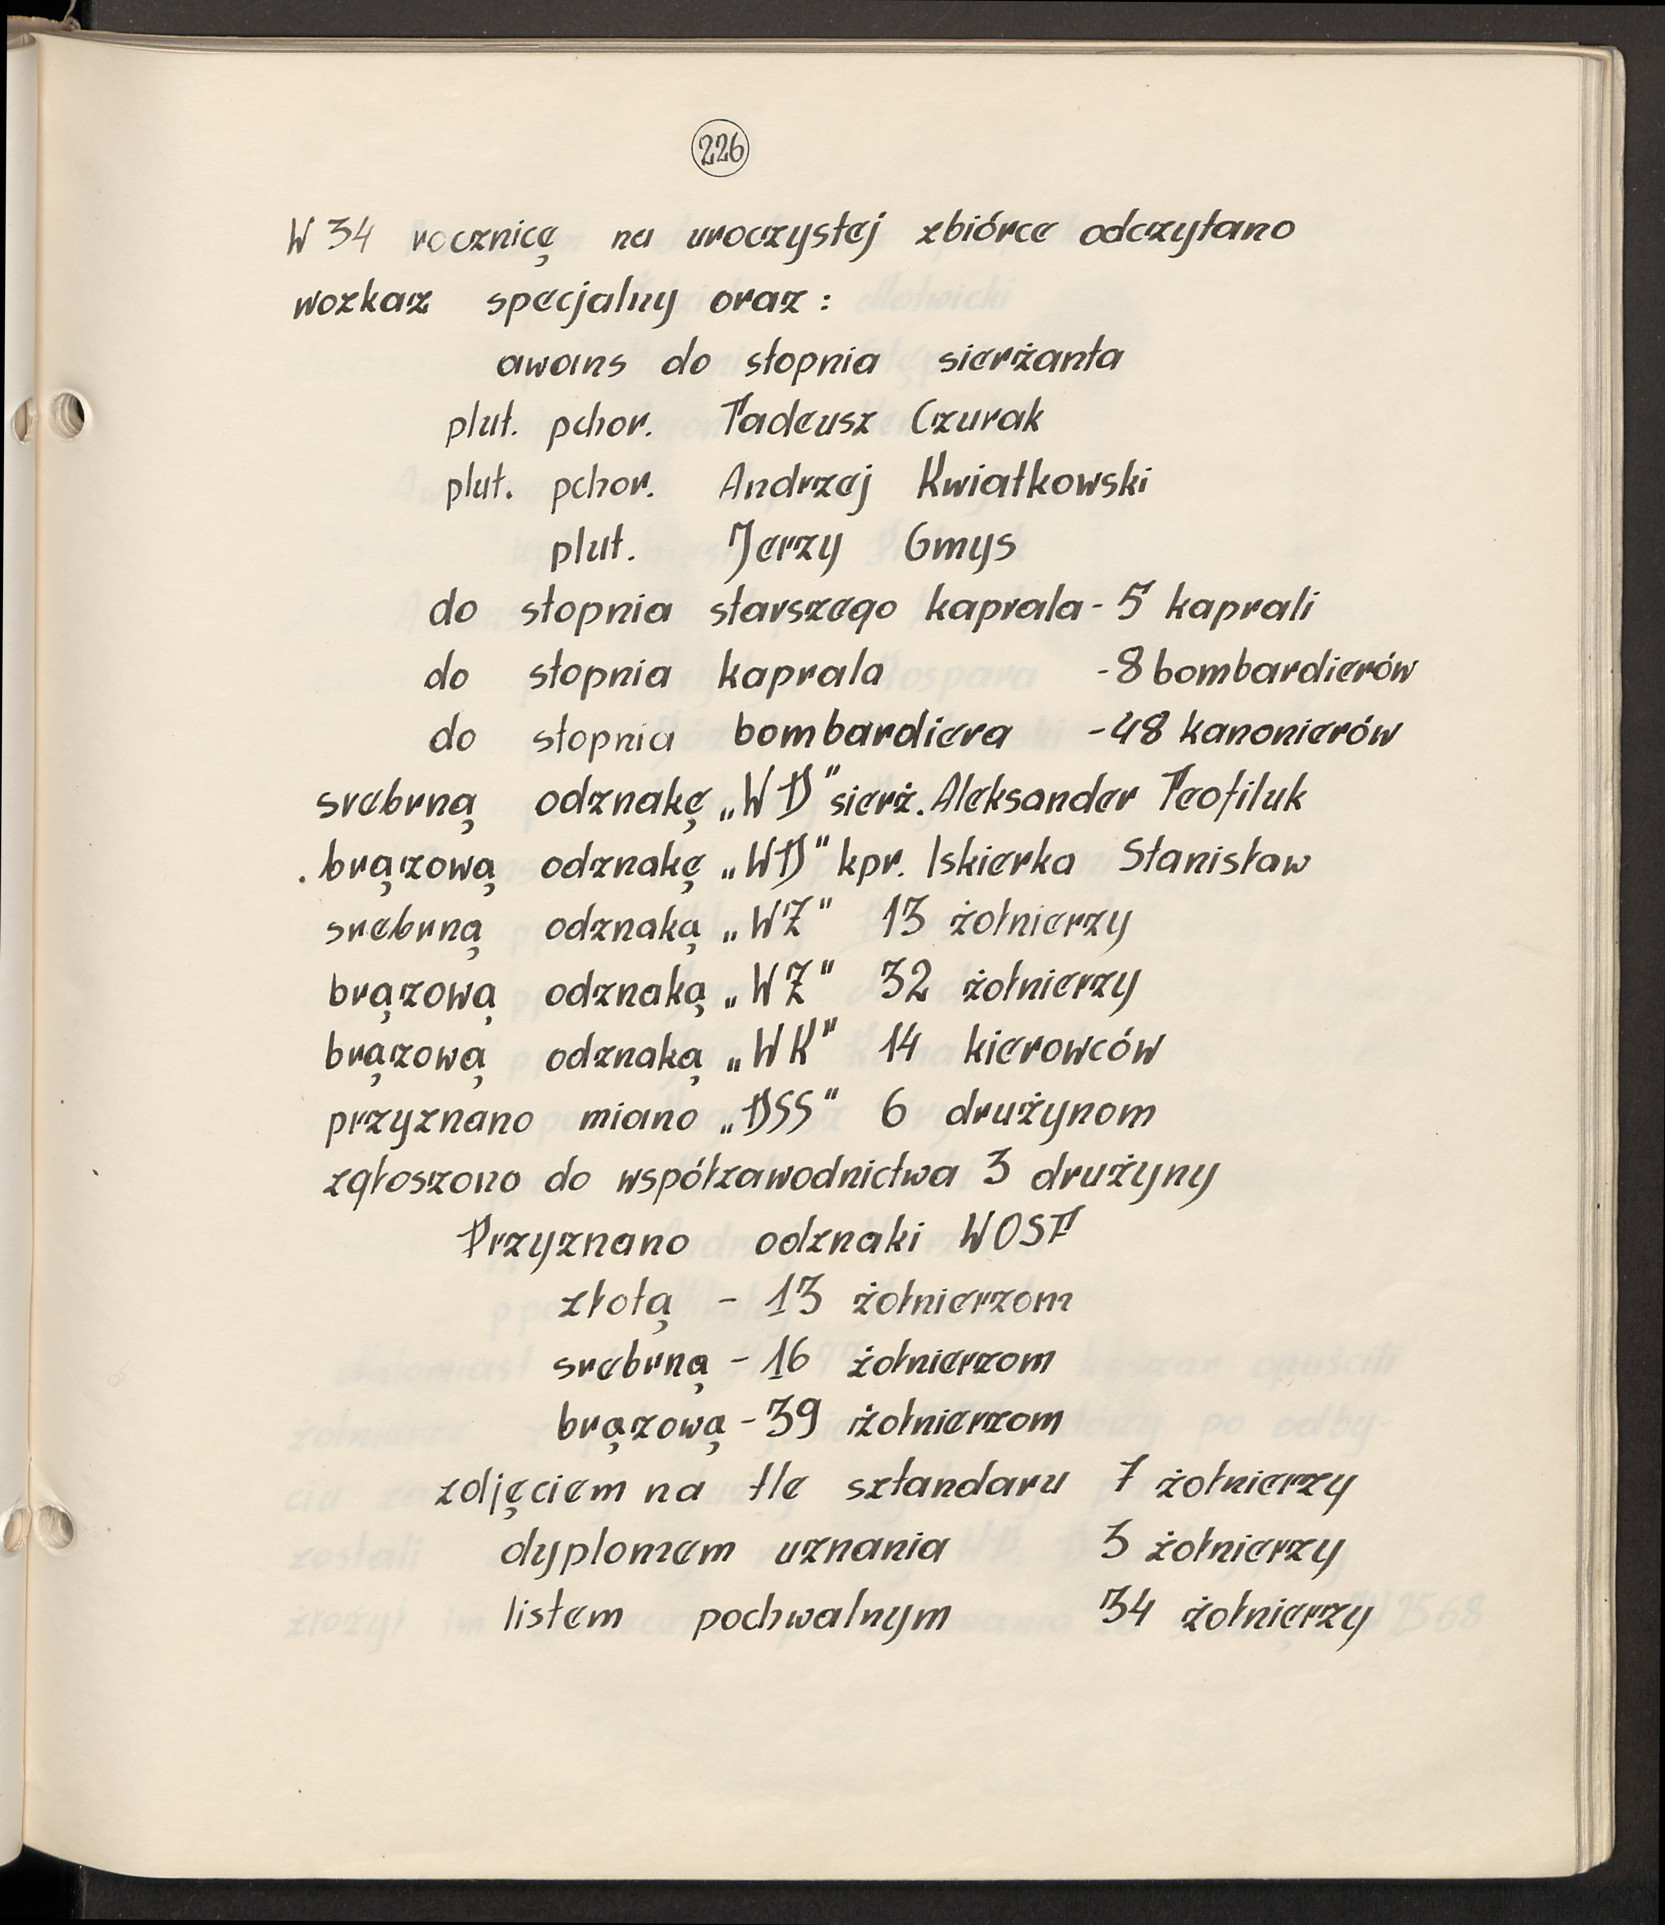 226
W 34 rocznicę na uroczystej zbiórce odczytano
wozkaz specjalny oraz :
awans do stopnia sierżanta
plut. pchor. Tadeusz Czurak
plut. pchor. Andrzej Kwiatkowski
plut. Jerzy Gmys
do stopnia starszego kaprala - 5 kaprali
do stopnia kaprala - 8 bombardierów
do stopnia bombardiera - 48 kanonierów
srebrną odznakę „WD" sierż. Aleksander Teofiluk
brązową odznakę „WD" kpr. Iskierka Stanisław
srebrną odznaką „WŻ" 13 żołnierzy
brązową odznaką „WŻ" 32 żołnierzy
brązową odznaką „WK" 14 kierowców
przyznano miano „DSS" 6 drużynom
zgłoszono do współzawodnictwa 3 drużyny
Przyznano odznaki WOSF
złotą - 13 żołnierzom
srebrną - 16 żołnierzom
brązową - 39 żołnierzom
zdjęciem na tle sztandaru 7 żołnierzy
dyplomem uznania 3 żołnierzy
listem pochwalnym 34 żołnierzy